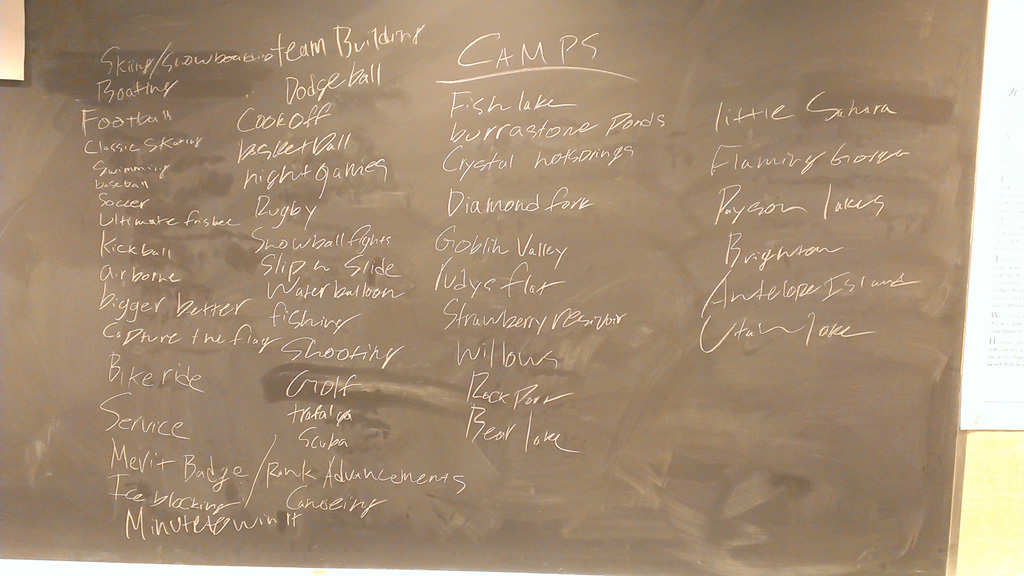 Skiing/Snowboarding
Boating
Football
Classic Skating
Swimming
baseball
Soccer
Ultimate frisbee
Kickball
airborne
bigger better
Capture the flag
Bike ride
Service
Merit Badge / Rank Advancements
Ice blocking
Minute to win it
team Building
Dodgeball
Cook off
basketball
night games
Rugby
Snowball fights
Slip n Slide
Water balloon
fishing
Shooting
Golf
trafalga
Scuba
Canoeing
CAMPS
Fish lake
burrastone Ponds
Crystal hotsprings
Diamond fork
Goblin Valley
rudys flat
Strawberry resivoir
Willows
Rock Port
Bear lake
little Sahara
Flaming Gorge
Payson lakes
Brighton
Antelope Island
Utah lake